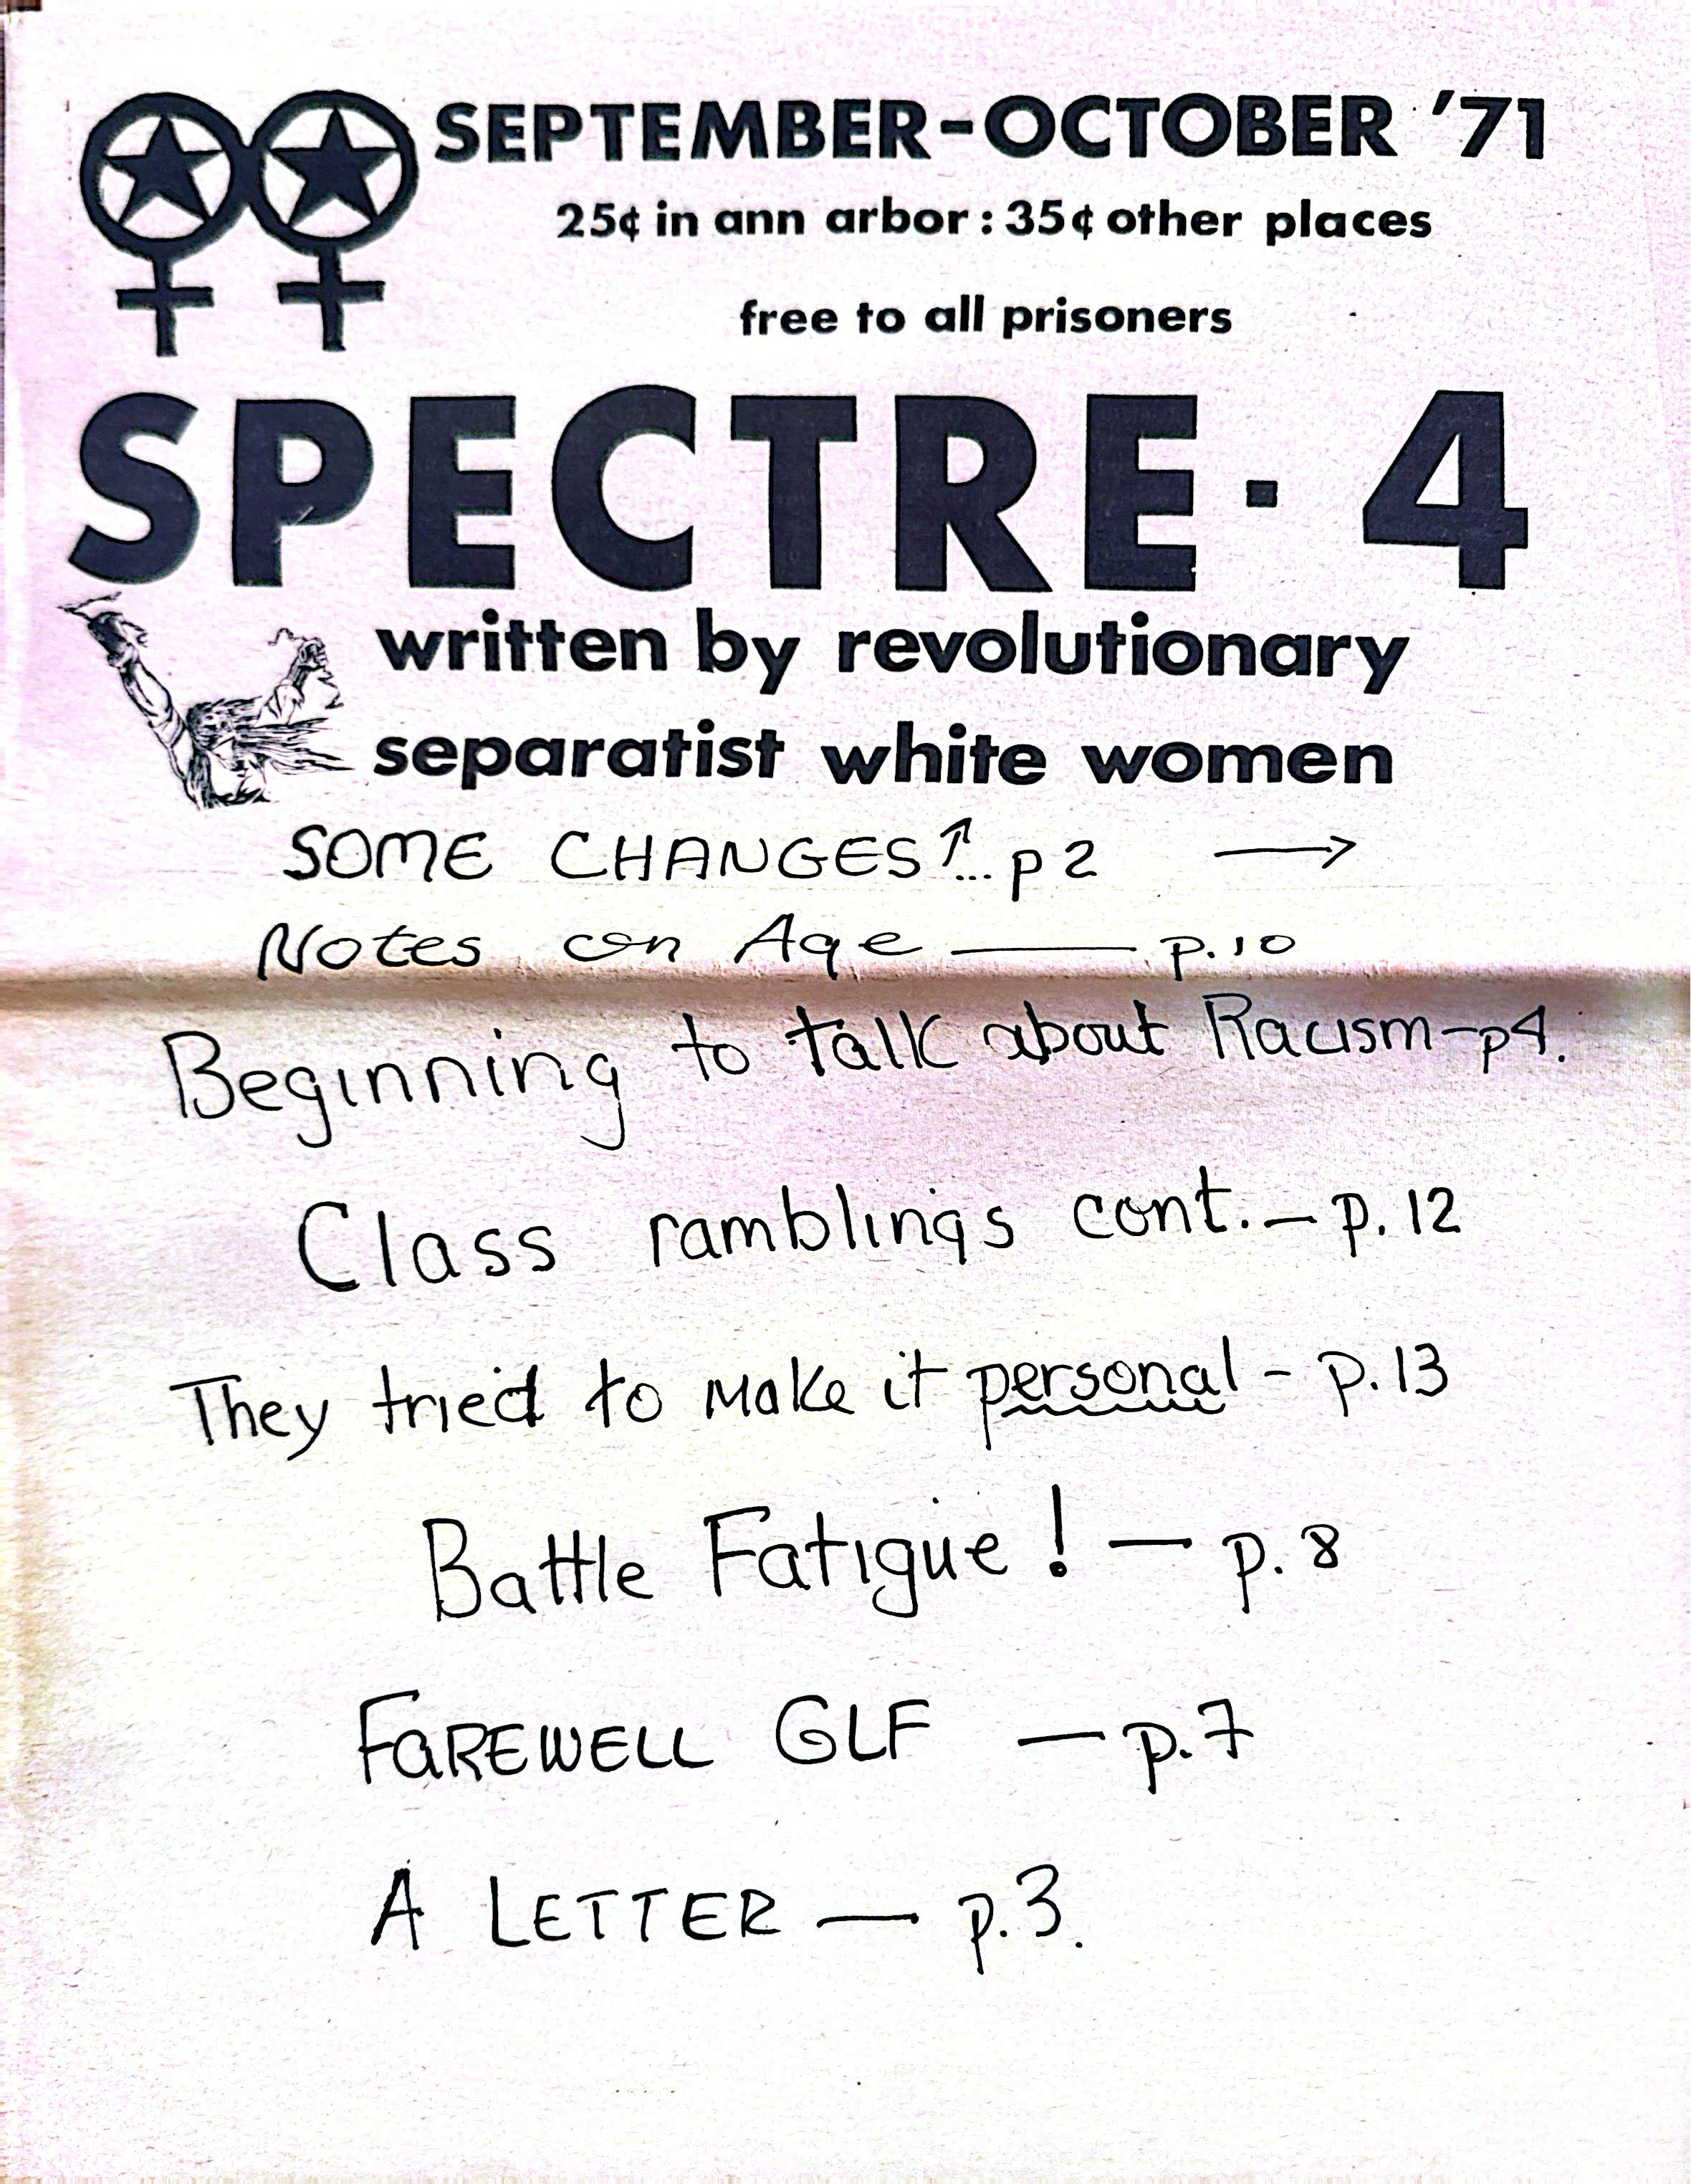 SEPTEMBER-OCTOBER '71
25¢ in ann arbor : 35¢ other places
free to all prisoners
SPECTRE · 4
written by revolutionary
separatist white women
SOME CHANGES↑... p 2 →
Notes on Age — p.10
Beginning to talk about Racism – p4.
Class ramblings cont. – p. 12
They tried to make it personal - p. 13
Battle Fatigue! — p. 8
FAREWELL GLF — p.7
A LETTER — p.3.